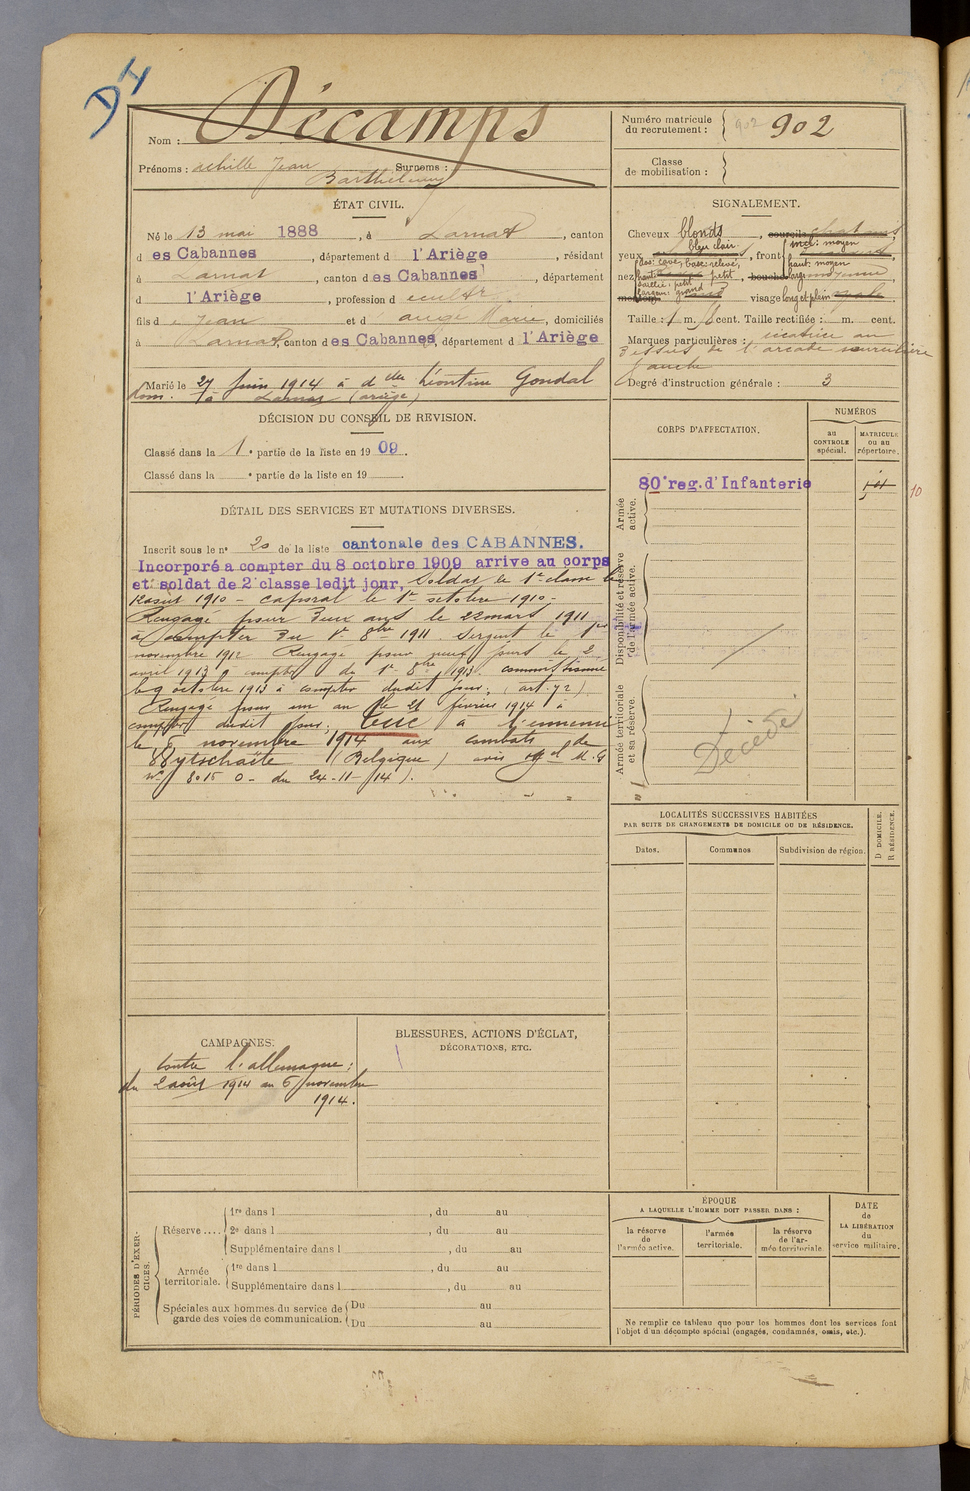 DH
Nom : Décamps
Prénoms : achille Jean Surnoms :
Barthélemy
Numéro matricule
du recrutement : 902 902
Classe
de mobilisation :
ÉTAT CIVIL.
Né le 13 mai 1888, à Larnat, canton
d es Cabannes, département d l'Ariège, résidant
à Larnat, canton d es Cabannes, département
d l'Ariège, profession d
fils d e Jean et d Marie, domiciliés
à Larnat, canton d es Cabannes, département d l'Ariège
Marié le 27 Juin 1914 à d elle Léontine Gondal
dom. à Larnat (ariège)
SIGNALEMENT.
Cheveux blonds, sourcils chatains,
yeux bleu clair, front incl: moyen
haut: moyen
nez dos: cave, base: relevé,
haut: petit, bouche larg: moyenne
saillie: petit
largeur: grand
menton visage long et plein
Taille : 1 m. cent. Taille rectifiée : m. cent.
Marques particulières : cicatrice au
dessus de l'arcade sourcilière
gauche
Degré d'instruction générale : 3
DÉCISION DU CONSEIL DE REVISION.
Classé dans la 1e partie de la liste en 1909.
Classé dans la e partie de la liste en 19 .
DÉTAIL DES SERVICES ET MUTATIONS DIVERSES.
Inscrit sous le n° 20 de la liste cantonale des CABANNES.
Incorporé a compter du 8 octobre 1909 arrive au corps
et soldat de 2e classe ledit jour, Soldat de 1e classe le
août 1910 - caporal le 1er octobre 1910 -
Rengagé pour deux ans le 22 mars 1911
à compter du 1er 8bre 1911. Sergent le 1er
novembre 1912 Rengagé pour jours le 2
avril 1913 à compter du 1er 8bre 1913. commissionné
le 9 octobre 1913 à compter dudit jour, (art. 72)
Rengagé pour un an le 21 février 1914 à
compter dudit jour. Tué à l'ennemi
le 6 novembre 1914 aux combats de
Wytschaëte (Belgique) avis M.G
N° 8015 O - du 24-11-14).
CORPS D'AFFECTATION.
NUMÉROS
au
CONTROLE
spécial.
MATRICULE
ou au
répertoire.
Armée
active.
80e reg. d'Infanterie
10
Disponibilité et réserve
de l'armée active.
Armée territoriale
et sa réserve.
Décédé
LOCALITÉS SUCCESSIVES HABITÉES
PAR SUITE DE CHANGEMENTS DE DOMICILE OU DE RÉSIDENCE.
Dates.
Communes
Subdivision de région.
D DOMICILE.
R RÉSIDENCE.
CAMPAGNES:
contre l'allemagne:
du 2 août 1914 au 6 novembre
1914.
BLESSURES, ACTIONS D'ÉCLAT,
DÉCORATIONS, ETC.
PÉRIODES D'EXERCICES.
Réserve....
1re dans l , du au
2e dans l , du au
Supplémentaire dans l , du au
Armée
territoriale.
1re dans l , du au
Supplémentaire dans l , du au
Spéciales aux hommes du service de
garde des voies de communication.
Du au
Du au
ÉPOQUE
A LAQUELLE L'HOMME DOIT PASSER DANS :
la réserve
de
l'armée active.
l'armée
territoriale.
la réserve
de l'ar-
mée territoriale.
DATE
de
LA LIBÉRATION
du
service militaire.
Ne remplir ce tableau que pour les hommes dont les services font
l'objet d'un décompte spécial (engagés, condamnés, omis, etc.).